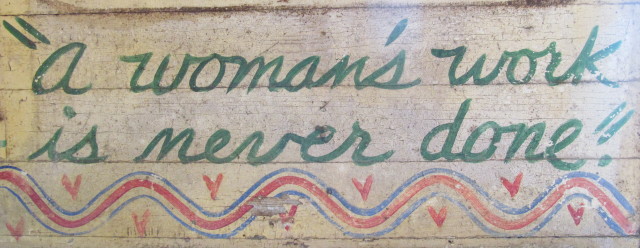 "a woman's work
is never done!"